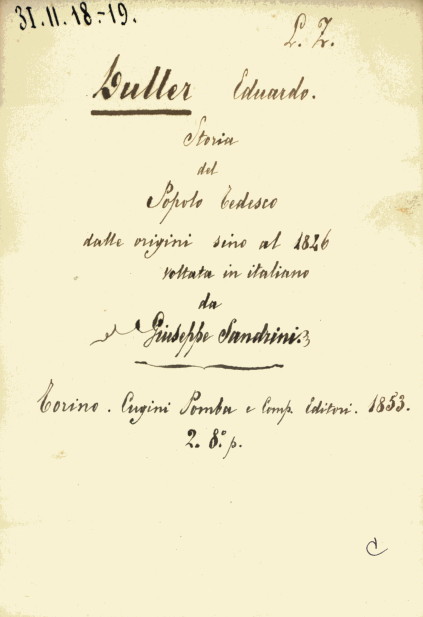 31.II.18-19.
L. Z.
Duller Eduardo.
Storia
del
Popolo Tedesco
dalle origini sino al 1846
voltata in italiano
da
Giuseppe Sandrini.
Torino. Cugini Pomba e Comp. Editori. 1853.
2. 8.° p.
C